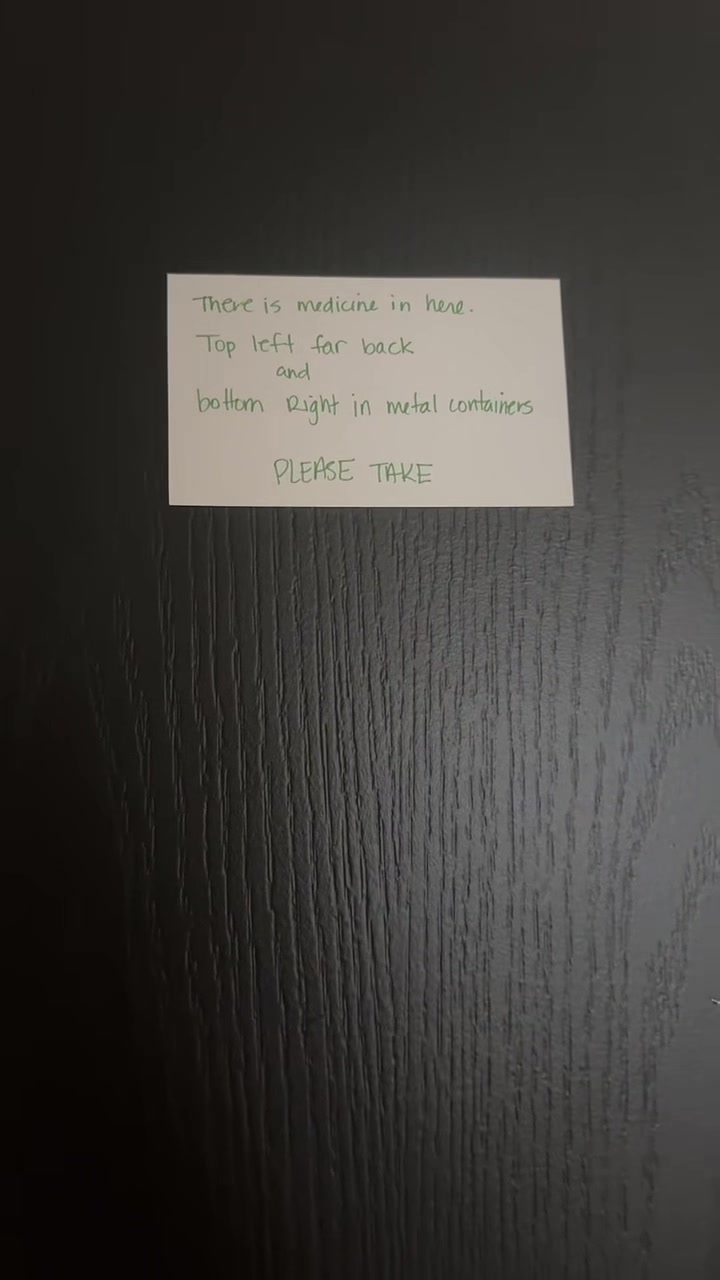 There is medicine in here.
Top left far back
and
bottom Right in metal containers
PLEASE TAKE